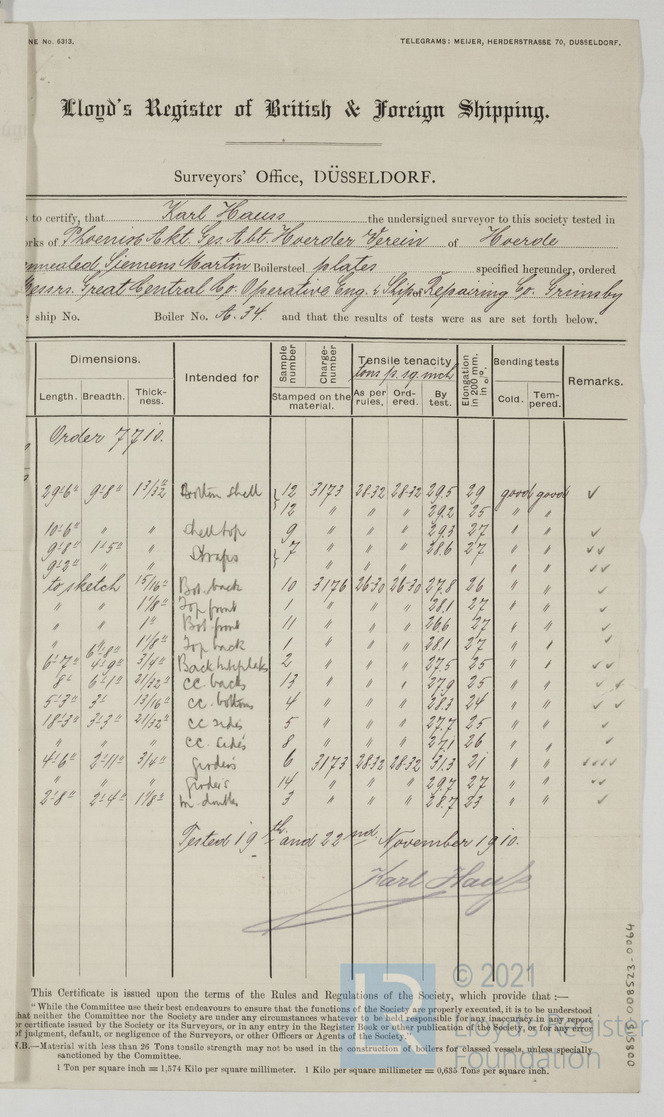 NE No. 6313. TELEGRAMS: MEIJER, HERDERSTRASSE 70, DUSSELDORF.
Lloyd's Register of British & Foreign Shipping.
Surveyors' Office, DÜSSELDORF.
to certify, that Karl Hauss the undersigned surveyor to this society tested in
rks of Phoenix Akt. Ges. Abt. Hoerder Verein of Hoerde
annealed Siemens Martin Boilersteel plates specified hereunder, ordered
Messrs. Great Central Co. Operative Eng. & Ship Repairing Co. Grimsby
ship No. Boiler No. A. 34. and that the results of tests were as are set forth below.
Dimensions. Intended for Sample number Charge-number Tensile tenacity tons p. sq. inch Elongation in 200 mm. in % Bending tests Remarks.
Length. Breadth. Thick-ness. Stamped on the material. As per rules, Ord-ered. By test. Cold. Tem-pered.
Order 7710.
29'-6" 9'-8" 1 3/32" Bottom shell 12 3173 28-32 28-32 29.5 29 good good ✓
12 " " " 29.2 25 " "
10'-6" " " Shell top 9 " " " 29.3 27 " " ✓
9'-8" 1'-5" " Straps 7 " " " 28.6 27 " " ✓✓
9'-2" " " " " " " " ✓✓
to sketch 15/16" Bot. back 10 3176 26-30 26-30 27.8 26 " " ✓
" " 1 1/8" Top front 1 " " " 28.1 27 " " ✓
" " 1" Bot. front 11 " " " 26.6 27 " " ✓
" 1 1/8" Top back 1 " " " 28.1 27 " " ✓
6'-7" 4'-9" 3/4" Back 2 " " " 27.5 25 " " ✓✓
8' 6'-1" 21/32" CC. backs 13 " " " 27.9 25 " " ✓✓
5'-3" 3' 13/16" CC. bottoms 4 " " " 28.3 24 " " ✓✓
18'-3" 3'-3" 21/32" CC sides 5 " " " 27.7 25 " " ✓
" " " CC. sides 8 " " " 27.1 26 " " ✓
4'-6" 2'-11" 3/4" girders 6 3173 28-32 28-32 31.3 21 " " ✓✓✓✓
" " " girders 14 " " " 29.7 27 " " ✓✓
2'-8" 2'-4" 1 1/8" m. doubles 3 " " " 28.7 23 " " ✓
Tested 19th and 22nd November 1910.
Karl Hauss
This Certificate is issued upon the terms of the Rules and Regulations of the Society, which provide that :—
"While the Committee use their best endeavours to ensure that the functions of the Society are properly executed, it is to be understood
hat neither the Committee nor the Society are under any circumstances whatever to be held responsible for any inaccuracy in any report
r certificate issued by the Society or its Surveyors, or in any entry in the Register Book or other publication of the Society, or for any error
f judgment, default, or negligence of the Surveyors, or other Officers or Agents of the Society."
N.B.—Material with less than 26 Tons tensile strength may not be used in the construction of boilers for classed vessels, unless specially
sanctioned by the Committee.
1 Ton per square inch = 1,574 Kilo per square millimetre. 1 Kilo per square millimetre = 0,635 Tons per square inch.
© 2021
Lloyd's Register
Foundation